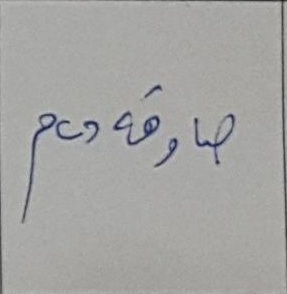 صادقه دعم